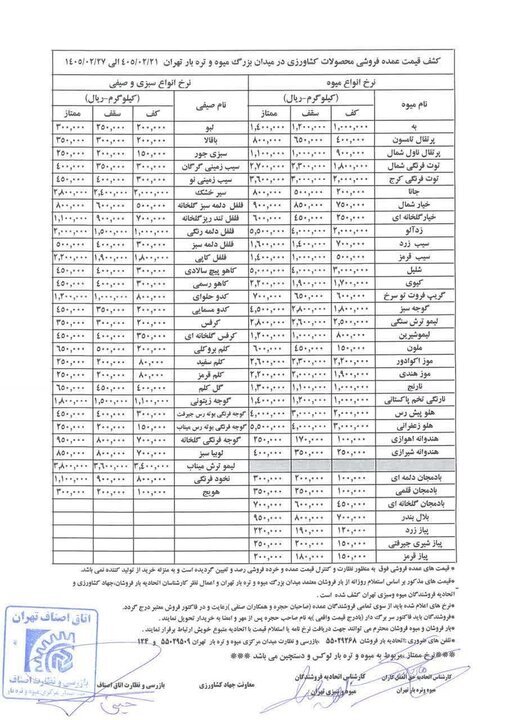 کشف قیمت عمده فروشی محصولات کشاورزی در میدان بزرگ میوه و تره بار تهران ۱۴۰۵/۰۲/۲۱ الی ۱۴۰۵/۰۲/۲۷
نرخ انواع میوه نرخ انواع سبزی و صیفی
نام میوه (کیلوگرم-ریال) نام صیفی (کیلوگرم-ریال)
کف سقف ممتاز کف سقف ممتاز
به ۱,۰۰۰,۰۰۰ ۱,۲۰۰,۰۰۰ ۱,۴۰۰,۰۰۰ لبو ۲۰۰,۰۰۰ ۲۵۰,۰۰۰ ۳۰۰,۰۰۰
پرتقال تامسون ۴۰۰,۰۰۰ ۶۵۰,۰۰۰ ۸۰۰,۰۰۰ باقالا ۲۰۰,۰۰۰ ۳۰۰,۰۰۰ ۳۵۰,۰۰۰
پرتقال ناول شمال ۹۰۰,۰۰۰ ۱,۰۰۰,۰۰۰ ۱,۱۰۰,۰۰۰ سبزی جور ۱۵۰,۰۰۰ ۲۰۰,۰۰۰ ۲۵۰,۰۰۰
توت فرنگی شمال ۱,۸۰۰,۰۰۰ ۲,۳۰۰,۰۰۰ ۲,۷۰۰,۰۰۰ سیب زمینی گرگان ۳۰۰,۰۰۰ ۳۵۰,۰۰۰ ۴۰۰,۰۰۰
توت فرنگی کرج ۲,۰۰۰,۰۰۰ ۳,۰۰۰,۰۰۰ ۳,۶۰۰,۰۰۰ سیب زمینی نو ۳۰۰,۰۰۰ ۴۰۰,۰۰۰ ۴۵۰,۰۰۰
جانا ۲۰۰,۰۰۰ ۵۰۰,۰۰۰ ۸۰۰,۰۰۰ سیر خشک ۲,۰۰۰,۰۰۰ ۲,۴۰۰,۰۰۰ ۲,۸۰۰,۰۰۰
خیار شمال ۷۵۰,۰۰۰ ۸۵۰,۰۰۰ ۹۰۰,۰۰۰ فلفل دلمه سبز گلخانه ۵۰۰,۰۰۰ ۶۰۰,۰۰۰ ۸۰۰,۰۰۰
خیار گلخانه ای ۲۵۰,۰۰۰ ۴۵۰,۰۰۰ ۶۰۰,۰۰۰ فلفل تند ریز گلخانه ۷۰۰,۰۰۰ ۹۰۰,۰۰۰ ۱,۱۰۰,۰۰۰
زردآلو ۲,۰۰۰,۰۰۰ ۴,۰۰۰,۰۰۰ ۵,۵۰۰,۰۰۰ فلفل دلمه رنگی ۱,۰۰۰,۰۰۰ ۱,۵۰۰,۰۰۰ ۲,۰۰۰,۰۰۰
سیب زرد ۷۰۰,۰۰۰ ۱,۴۰۰,۰۰۰ ۱,۶۰۰,۰۰۰ فلفل دلمه سبز ۳۰۰,۰۰۰ ۴۰۰,۰۰۰ ۵۰۰,۰۰۰
سیب قرمز ۵۰۰,۰۰۰ ۱,۰۰۰,۰۰۰ ۱,۴۰۰,۰۰۰ فلفل کاپی ۱,۸۰۰,۰۰۰ ۱,۹۰۰,۰۰۰ ۲,۲۰۰,۰۰۰
شلیل ۳,۰۰۰,۰۰۰ ۴,۰۰۰,۰۰۰ ۵,۰۰۰,۰۰۰ کاهو پیچ سالادی ۳۰۰,۰۰۰ ۴۰۰,۰۰۰ ۴۵۰,۰۰۰
کیوی ۱,۷۰۰,۰۰۰ ۱,۹۰۰,۰۰۰ ۲,۲۰۰,۰۰۰ کاهو رسمی ۳۰۰,۰۰۰ ۴۰۰,۰۰۰ ۴۵۰,۰۰۰
گریپ فروت تو سرخ ۶۰۰,۰۰۰ ۶۵۰,۰۰۰ ۷۰۰,۰۰۰ کدو حلوای ۸۰۰,۰۰۰ ۱,۰۰۰,۰۰۰ ۱,۲۰۰,۰۰۰
گوجه سبز ۱,۸۰۰,۰۰۰ ۲,۸۰۰,۰۰۰ ۴,۵۰۰,۰۰۰ کدو مسمایی ۲۰۰,۰۰۰ ۳۵۰,۰۰۰ ۴۵۰,۰۰۰
لیمو ترش سنگی ۲,۵۰۰,۰۰۰ ۲,۶۰۰,۰۰۰ ۲,۸۰۰,۰۰۰ کرفس ۲۰۰,۰۰۰ ۳۰۰,۰۰۰ ۳۵۰,۰۰۰
لیموشیرین ۸۰۰,۰۰۰ ۱,۰۰۰,۰۰۰ ۱,۲۰۰,۰۰۰ کرفس گلخانه ای ۳۵۰,۰۰۰ ۴۰۰,۰۰۰ ۴۵۰,۰۰۰
ملون ۱۵۰,۰۰۰ ۴۵۰,۰۰۰ ۶۰۰,۰۰۰ کلم بروکلی ۲۰۰,۰۰۰ ۴۰۰,۰۰۰ ۵۰۰,۰۰۰
موز اکوادور ۲,۲۰۰,۰۰۰ ۲,۳۰۰,۰۰۰ ۲,۶۰۰,۰۰۰ کلم سفید ۸۰,۰۰۰ ۲۰۰,۰۰۰ ۲۵۰,۰۰۰
موز هندی ۱,۹۰۰,۰۰۰ ۲,۰۰۰,۰۰۰ ۲,۲۰۰,۰۰۰ کلم قرمز ۸۰,۰۰۰ ۲۰۰,۰۰۰ ۲۵۰,۰۰۰
نارنج ۱,۰۰۰,۰۰۰ ۱,۱۰۰,۰۰۰ ۱,۳۰۰,۰۰۰ گل کلم ۴۰۰,۰۰۰ ۶۵۰,۰۰۰ ۶۵۰,۰۰۰
نارنگی تخم پاکستانی ۱,۰۰۰,۰۰۰ ۱,۲۰۰,۰۰۰ ۱,۴۰۰,۰۰۰ گوجه زیتونی ۱,۱۰۰,۰۰۰ ۱,۵۰۰,۰۰۰ ۱,۸۰۰,۰۰۰
هلو پیش رس ۲,۰۰۰,۰۰۰ ۳,۰۰۰,۰۰۰ ۴,۰۰۰,۰۰۰ گوجه فرنگی بوته رس جیرفت ۳۰۰,۰۰۰ ۴۰۰,۰۰۰ ۴۵۰,۰۰۰
هلو زعفرانی ۳,۰۰۰,۰۰۰ ۴,۰۰۰,۰۰۰ ۵,۵۰۰,۰۰۰ گوجه فرنگی بوته رس میناب ۱۵۰,۰۰۰ ۲۰۰,۰۰۰ ۲۰۰,۰۰۰
هندوانه اهوازی ۱۰۰,۰۰۰ ۱۷۰,۰۰۰ ۲۵۰,۰۰۰ گوجه فرنگی گلخانه ۷۰۰,۰۰۰ ۸۰۰,۰۰۰ ۹۵۰,۰۰۰
هندوانه شیرازی ۲۵۰,۰۰۰ ۳۵۰,۰۰۰ ۴۰۰,۰۰۰ لوبیا سبز ۷۰۰,۰۰۰ ۸۰۰,۰۰۰ ۸۵۰,۰۰۰
لیمو ترش میناب ۳,۴۰۰,۰۰۰ ۳,۶۰۰,۰۰۰ ۳,۸۰۰,۰۰۰
بادمجان دلمه ای ۱۰۰,۰۰۰ ۲۰۰,۰۰۰ ۳۰۰,۰۰۰ نخود فرنگی ۸۰۰,۰۰۰ ۹۰۰,۰۰۰ ۱,۱۰۰,۰۰۰
بادمجان قلمی ۱۰۰,۰۰۰ ۲۵۰,۰۰۰ ۳۵۰,۰۰۰ هویج ۱۰۰,۰۰۰ ۲۰۰,۰۰۰ ۳۰۰,۰۰۰
بادمجان گلخانه ای ۴۵۰,۰۰۰ ۶۰۰,۰۰۰ ۷۰۰,۰۰۰
بلال بندر ۷۰۰,۰۰۰ ۸۰۰,۰۰۰ ۹۵۰,۰۰۰
پیاز زرد ۱۲۰,۰۰۰ ۱۹۰,۰۰۰ ۲۲۰,۰۰۰
پیاز شیری جیرفتی ۱۵۰,۰۰۰ ۲۰۰,۰۰۰ ۲۵۰,۰۰۰
پیاز قرمز ۱۵۰,۰۰۰ ۱۸۰,۰۰۰ ۲۰۰,۰۰۰
* قیمت های عمده فروشی فوق به منظور نظارت و کنترل قیمت عمده و خرده فروشی رصد و تعیین گردیده است و به منزله خرید از تولید کننده نمی باشد.
* قیمت های مذکور بر اساس استعلام روزانه از بار فروشان معتمد میدان بزرگ میوه و تره بار تهران و اعمال نظر کارشناسان اتحادیه بار فروشان، جهاد کشاورزی و اتحادیه فروشندگان میوه وسبزی تهران کشف شده است.
* نرخ های اعلام شده باید از سوی تمامی فروشندگان عمده (صاحبان حجره و همکاران صنفی )رعایت و در فاکتور فروش معتبر درج گردد.
* فروشندگان باید فاکتور سر برگ دار (بادرج قیمت واقعی )به نام صاحب حجره پس از مهر و امضا به خریدار تحویل نمایند.
* بارفروشان و میوه فروشان محترم می توانند جهت دریافت نرخ نامه یا استعلام قیمت با اتحادیه متبوع خویش ارتباط برقرار نمایند.
* تلفن های ضروری :اتحادیه بار فروشان ۵۵۰۲۹۲۶۸ بازرسی و نظارت میدان مرکزی میوه و تره بار تهران ۵۵۰۲۹۵۰۹ و ۱۲۴
***نرخ ممتاز مربوط به میوه و تره بار لوکس و دستچین می باشد ***
کارشناس اتحادیه حق العملکاران میوه وتره بار تهران
کارشناس اتحادیه فروشندگان میوه وسبزی تهران
معاونت جهاد کشاورزی
بازرسی و نظارت اتاق اصناف
اتاق اصناف تهران
بازرسی و نظارت اصناف
میدان مرکزی میوه و تره بار